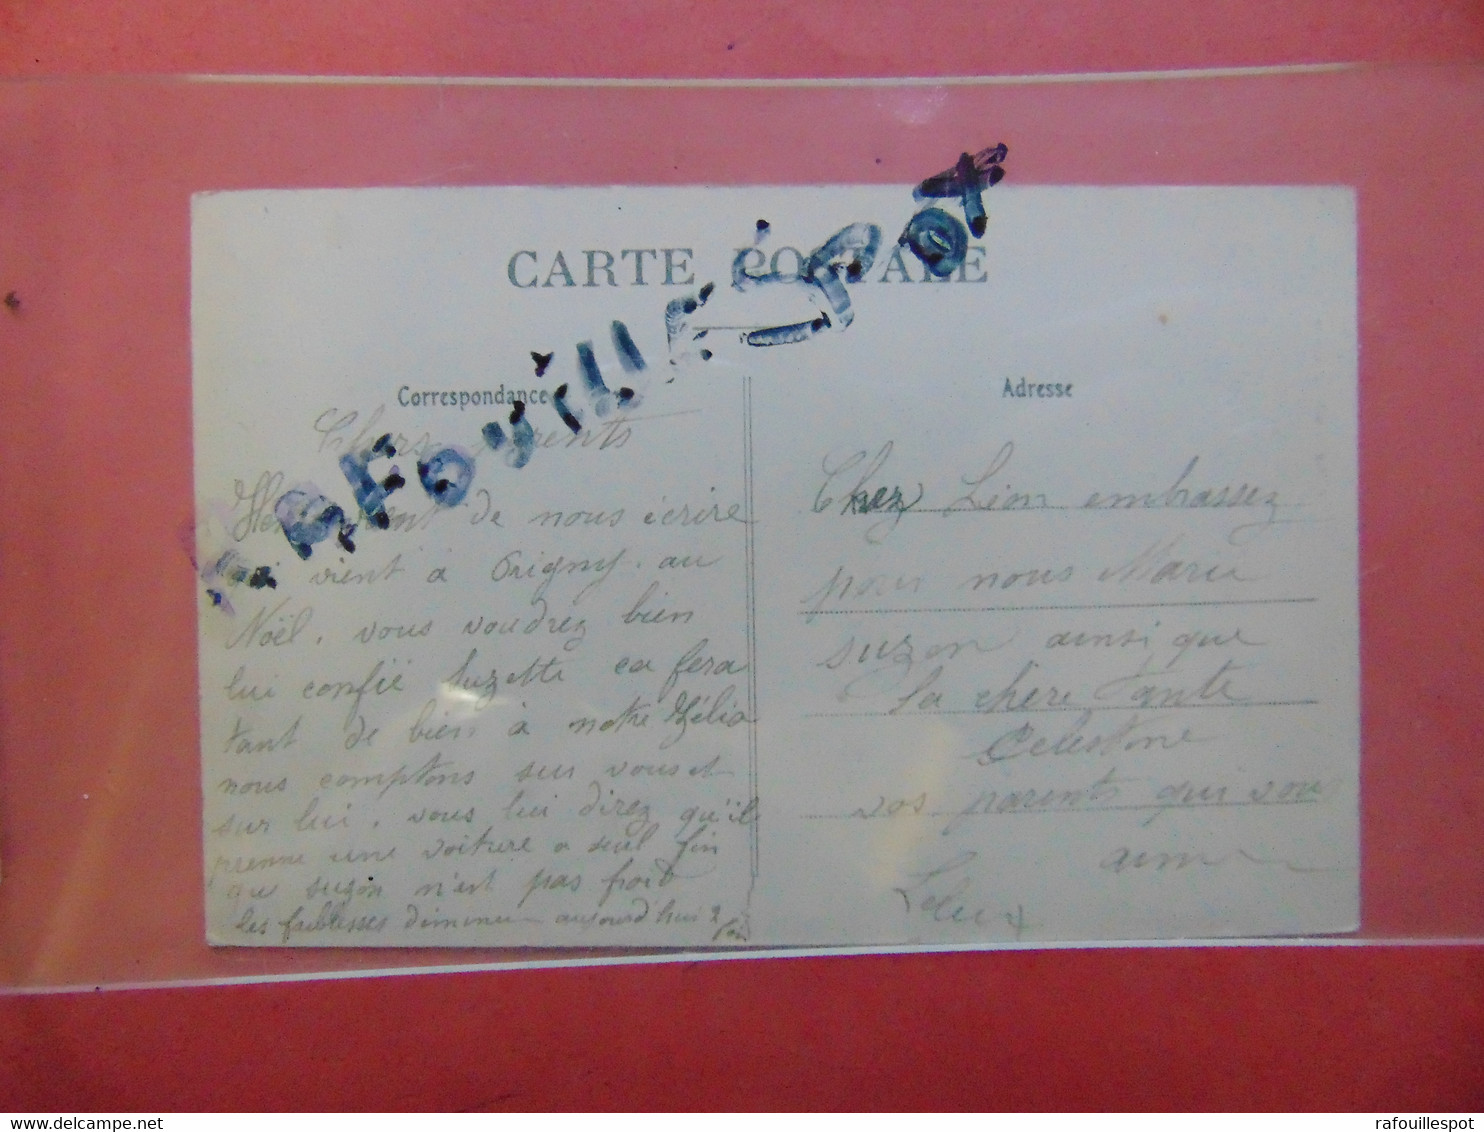 CARTE POSTALE
RAFOUILLESPOT
Correspondance
Chers parents
vient de nous écrire
vient à Origny. au
Noël. vous voudrez bien
lui confié Suzette ca fera
tant de bien à notre Zélia
nous comptons sur vous et
sur lui. vous lui direz qu'il
prenne une voiture a seul fin
que suzon n'est pas froid
les faiblesses diminue aujourd'hui 2
Adresse
Chez Léon embrassez
pour nous Maria
suzon ainsi que
la chère tante
Celestine
vos parents qui vous
aime
rafouillespot
delcampe.net